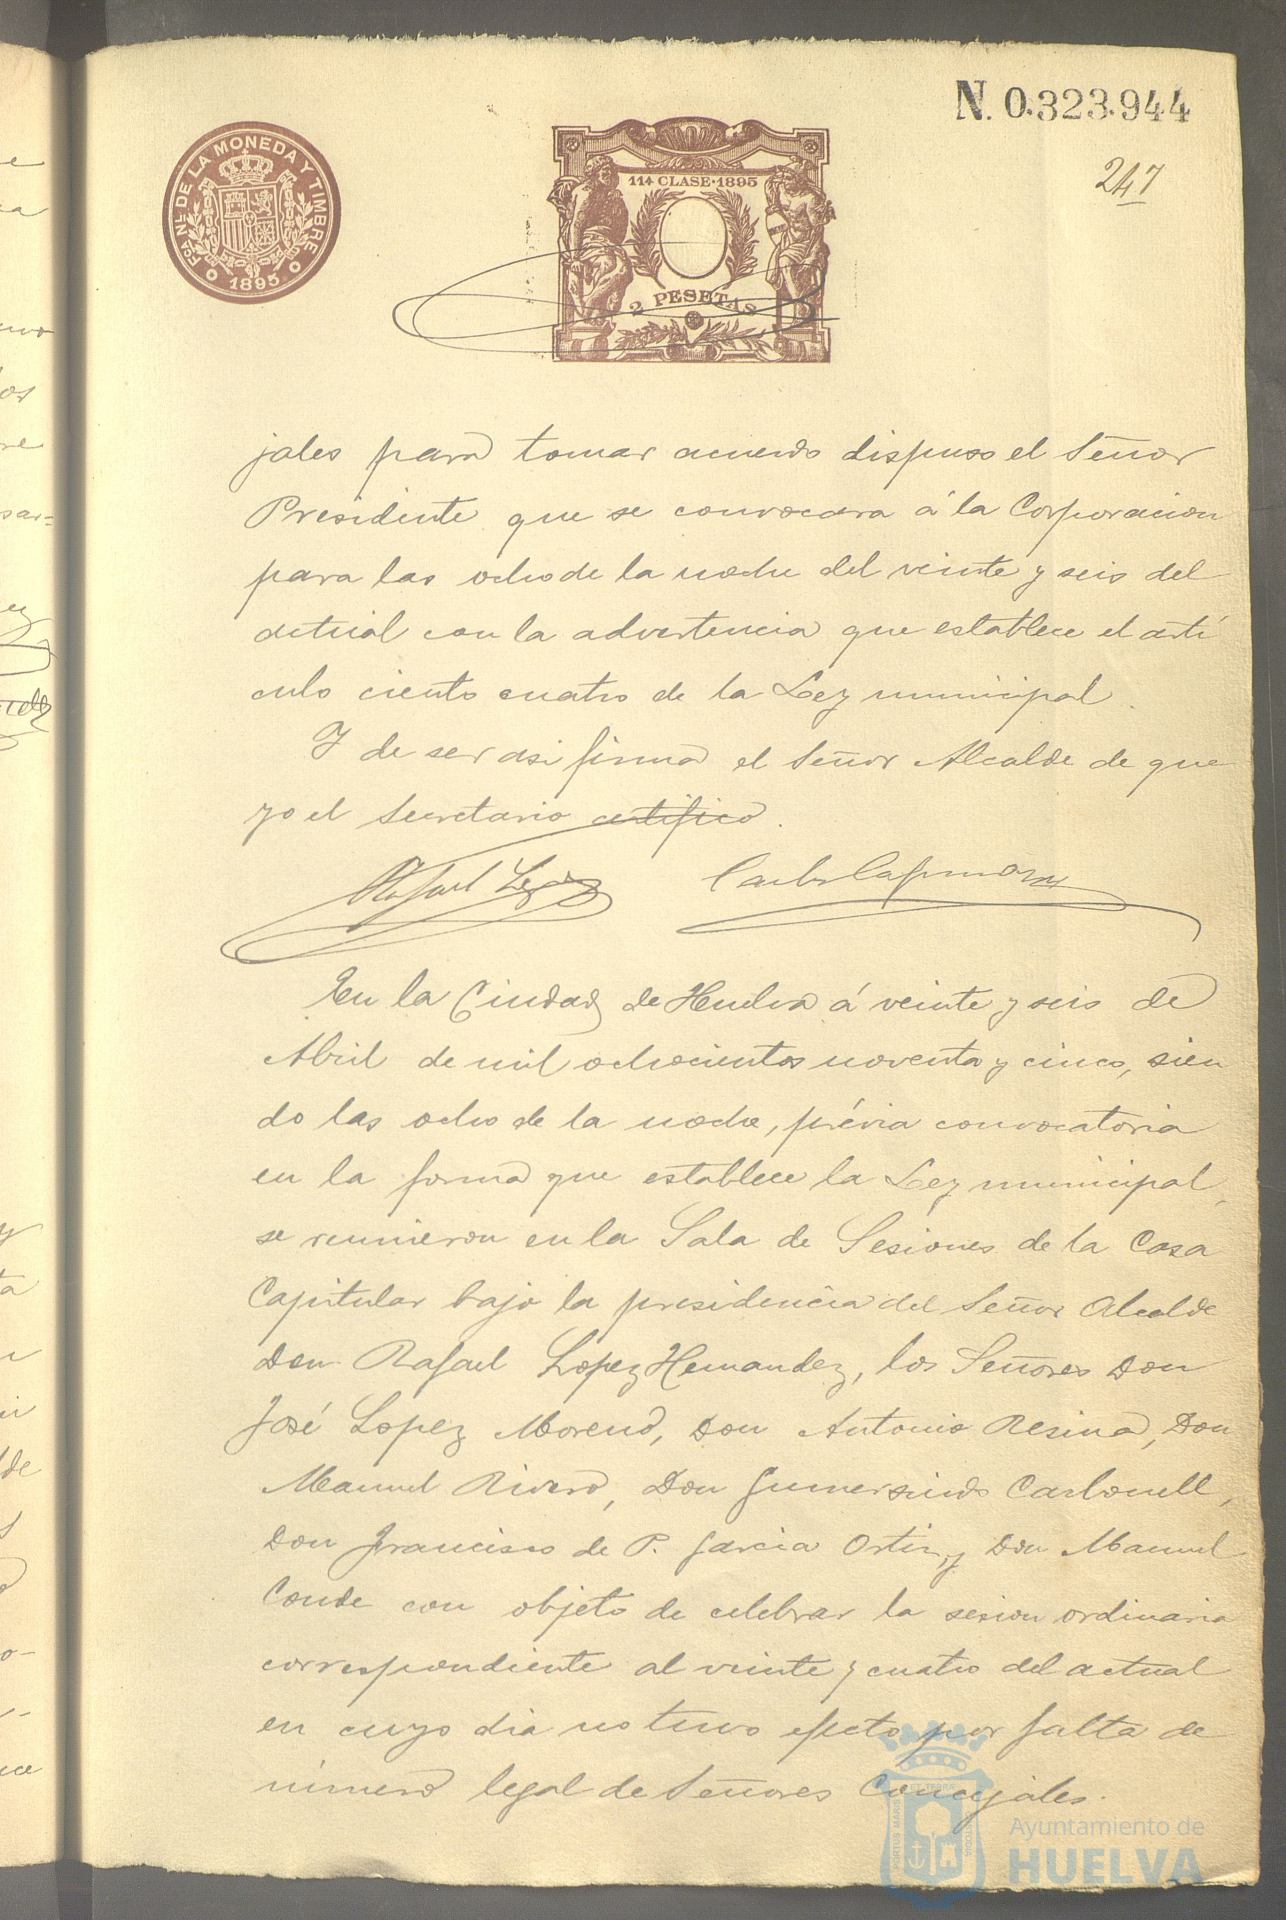 N. 0.323.944
247
FCA. NL. DE LA MONEDA Y TIMBRE
1895
11ª CLASE·1895
2 PESETAS
jales para tomar acuerdo dispuso el Señor
Presidente que se convocara á la Corporacion
para las ocho de la noche del veinte y seis del
actual con la advertencia que establece el arti
culo ciento cuatro de la Ley municipal.
Y de ser asi firma el Señor Alcalde de que
yo el Secretario certifico.
Rafael Lopez
En la Ciudad de Huelva á veinte y seis de
Abril de mil ochocientos noventa y cinco, sien
do las ocho de la noche, prévia convocatoria
en la forma que establece la Ley municipal,
se reunieron en la Sala de Sesiones de la Casa
Capitular bajo la presidencia del Señor Alcalde
Don Rafael Lopez Hernandez, los Señores Don
José Lopez Moreno, Don Antonio Resina, Don
Manuel Rivero, Don Gumersindo Carbonell,
Don Francisco de P. Garcia Ortiz, y Don Manuel
Conde con objeto de celebrar la sesion ordinaria
correspondiente al veinte y cuatro del actual
en cuyo dia no tuvo efecto por falta de
número legal de Señores Concejales.
Ayuntamiento de
HUELVA